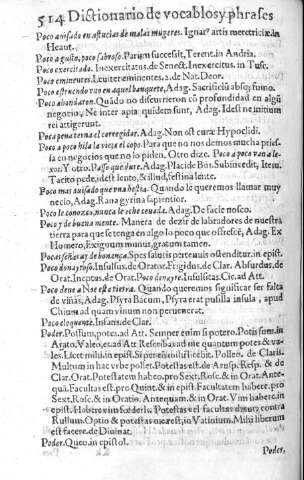 514 Dictionario de vocablos y phrases
Poco avisado en astucias de malas mugeres. Ignarꝰ artis meretriciæ in
Heaut.
Poco a gusto, poco sabroso. Parum successit, Terent. in Andria.
Poco exercitado. Inexercitatus de Senect. Inexercitus. in Tusc.
Poco eminentes. Leuiter eminentes. 2. de Nat. Deor.
Poco estruendo vuo en aquel banquete, Adag. Sacrificiū absq; fumo.
Poco abondaron. Quādo no discurrieron cō profundidad en algū
negotio, Ne inter apia quidem sunt, Adag. Idest ne initium
rei attigerunt.
Poco pena terna el corregidor. Adag. Non est curæ Hypoclidi.
Poco a poco hila la vieja el copo. Para que no nos demos mucha pries-
sa en negocios que no lo piden, Otro dize. Poco a poco van a le-
xos. Y otro. Passe que dure. Adag. Placide Bos. Subinde edit, Item.
Tarito pede, idest lento, & illud, festina lente.
Poco mas auisado que vna bestia. Quando le queremos llamar muy
necio, Adag. Rana gyrina sapientior.
Poco le conozco, nunca le eche ceuada. Adag. De facie nosco.
Poco y de buena mente. Manera de dezir de labradores de nuestra
tierra para que se tenga en algo lo poco que offrescē, Adag. Ex
Homero, Exiguum munus, gratum tamen.
Pocas señas ay de bonança. Spes salutis pertenuis ostenditur. in epist.
Poco donayroso. Insulsus, de Orator. Frigidus, de Clar. Absurdus, de
Orat. Ineptus, de Orat. Poco donayre. Insulsitas. Cic. ad Att.
Poco deue a Noe esta tierra. Quando queremos significar ser falta
de viñas, Adag. Psyra Bacum, Psyra erat pusilla insula, apud
Chium ad quam vinum non perueuerat.
Poco eloquente. Infans de Clar.
Poder. Possum, potes. ad Att. Semper enim si potero. Potis sum, in
Arato, Valeo, et. ad Att. Rescribas ad me quantum potes & va-
les. Licet mihi. in epist. Si per eū nihil licebit. Polleo. de Claris.
Multum in hac vrbe pollet. Potestas est. de Arusp. Resp. & de
Clar. Orat. Potestatem habeo. pro Sext. Rosc. & in Orat. Anteq̄-
uam. Facultas est. pro Quint. & in epist. Facultatem habere. pro
Sext. Rosc. & in Oratio. Antequam. & in Orat. Vim habere. in
epist.
Rullum. Optio & potestas mea est, in Vatinium. Mihi liberum
est facere. de Diuinat.
Poder. Queo. in epistol.
Poder,